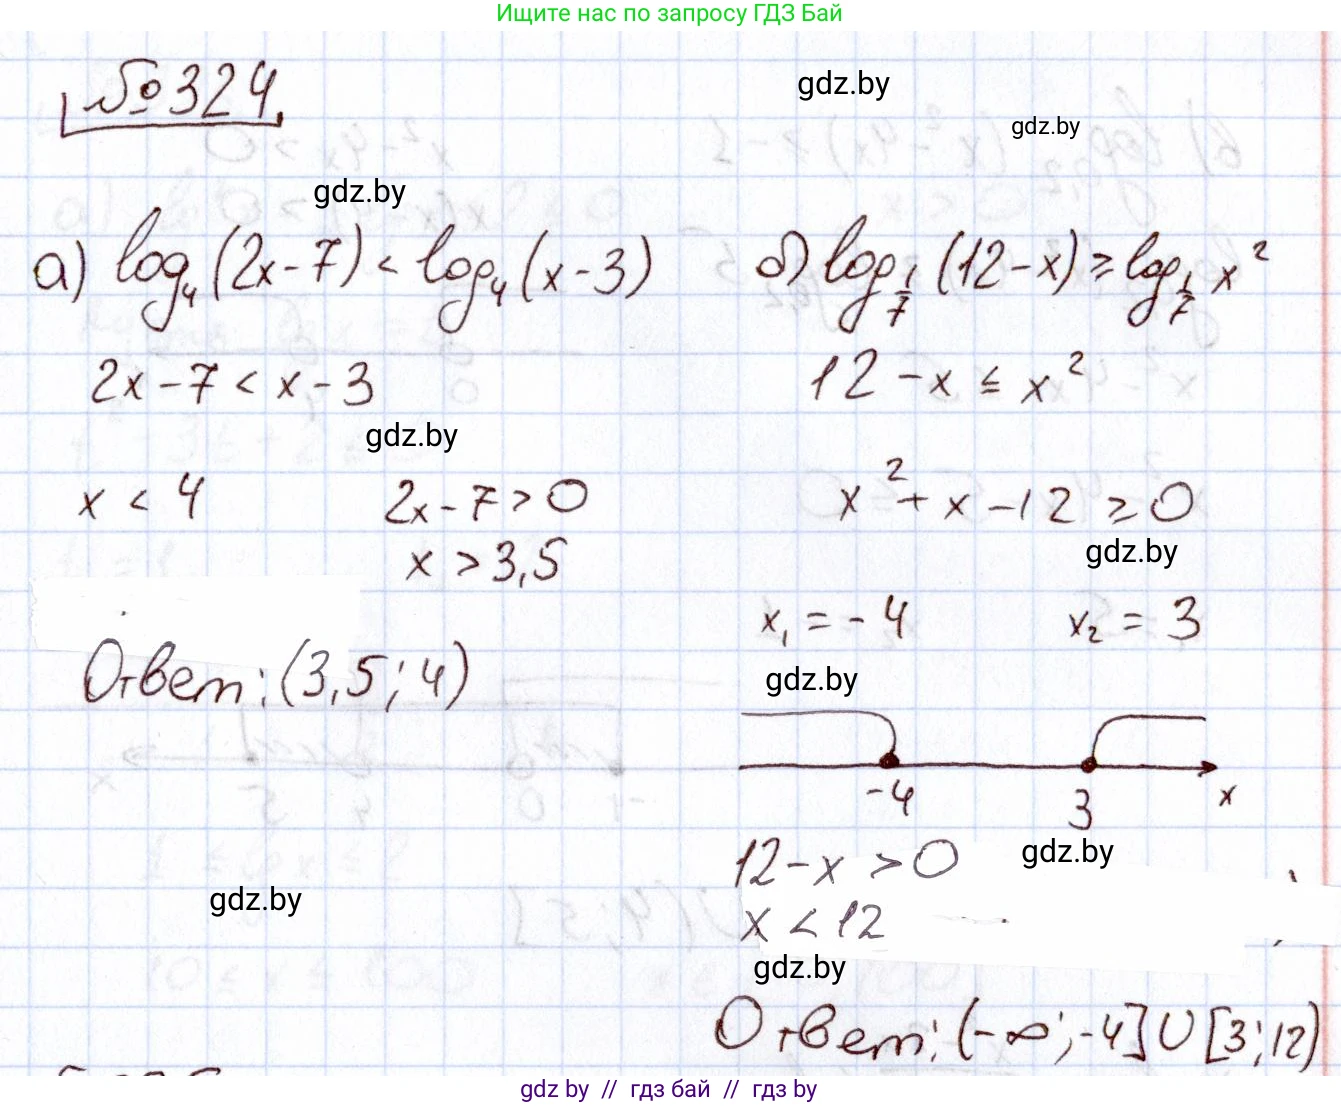 Ищите нас по запросу ГДЗ Бай
№324
gdz.by
gdz.by
gdz.by
а) log₄(2x-7) < log₄(x-3)
2x-7 < x-3
gdz.by
x < 4
2x-7 > 0
x > 3,5
Ответ: (3,5; 4)
gdz.by
б) log_{1/7}(12-x) ≥ log_{1/7} x²
12-x ≤ x²
x²+x-12 ≥ 0
gdz.by
x₁ = -4
x₂ = 3
gdz.by
-4
3
x
12-x > 0
gdz.by
x < 12
gdz.by
Ответ: (-∞; -4] ∪ [3; 12)
gdz by // гдз бай // гдз by